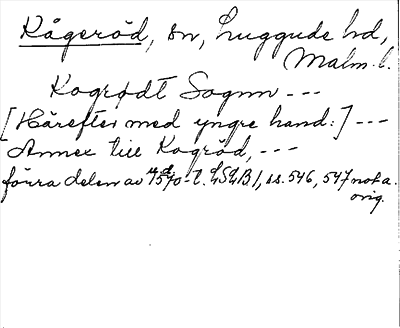 Kågeröd, sn, Luggude hd,
Malm. l.
Kogrødt Sognn ---
[Härefter med yngre hand:] ---
Annex till Kogröd, ---
förra delen av 1570-t. LSLB 1, ss. 546, 547 not a.
orig.